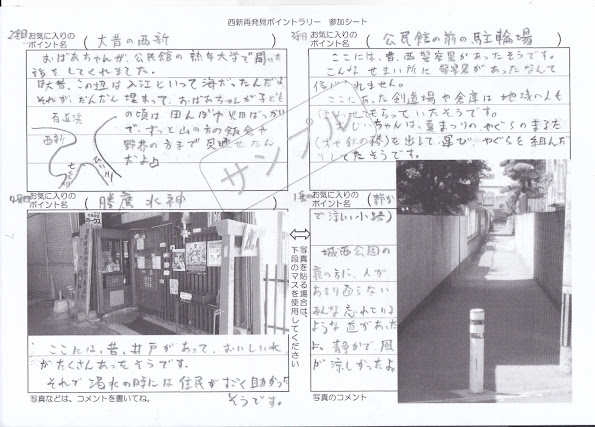 西新再発見ポイントラリー 参加シート
2番目 お気に入りのポイント名 ( 大昔の西新 )
おばあちゃんが、公民館の熟年大学で聞いた
話をしてくれました。
大昔、この辺は入江といって海だったんだよ
それが、だんだん埋まって、おばあちゃんが子ども
の頃は田んぼや畑ばっかり
で、ずっと山の方の飯倉や
野芥の方まで見渡せたん
だよ。
百道浜
西新
お気に入りのポイント名 ( 公民館の前の駐輪場 )
ここには、昔、西警察署があったそうです。
こんなせまい所に警察署があったなんて
信じられません。
ここにあった剣道場や倉庫は地域の人も
じいちゃんは、夏まつりのやぐらのまるた
を出して運び、やぐらを組んだり
してたそうです。
サンプル
4番目 お気に入りのポイント名 ( 勝鷹水神 )
ここには、昔、井戸があって、おいしい水
がたくさんあったそうです。
それで渇水の時には住民がすごく助かった
そうです。
写真などは、コメントを書いてね。
写真を貼る場合は、
下段のマスを使用してください
1番 お気に入りのポイント名 ( 静か
で涼しい小路 )
城西公園の
裏の方に、人が
あまり通らない
みんな忘れてい
ような道があった
よ。静かで風
が涼しかったよ
写真のコメント